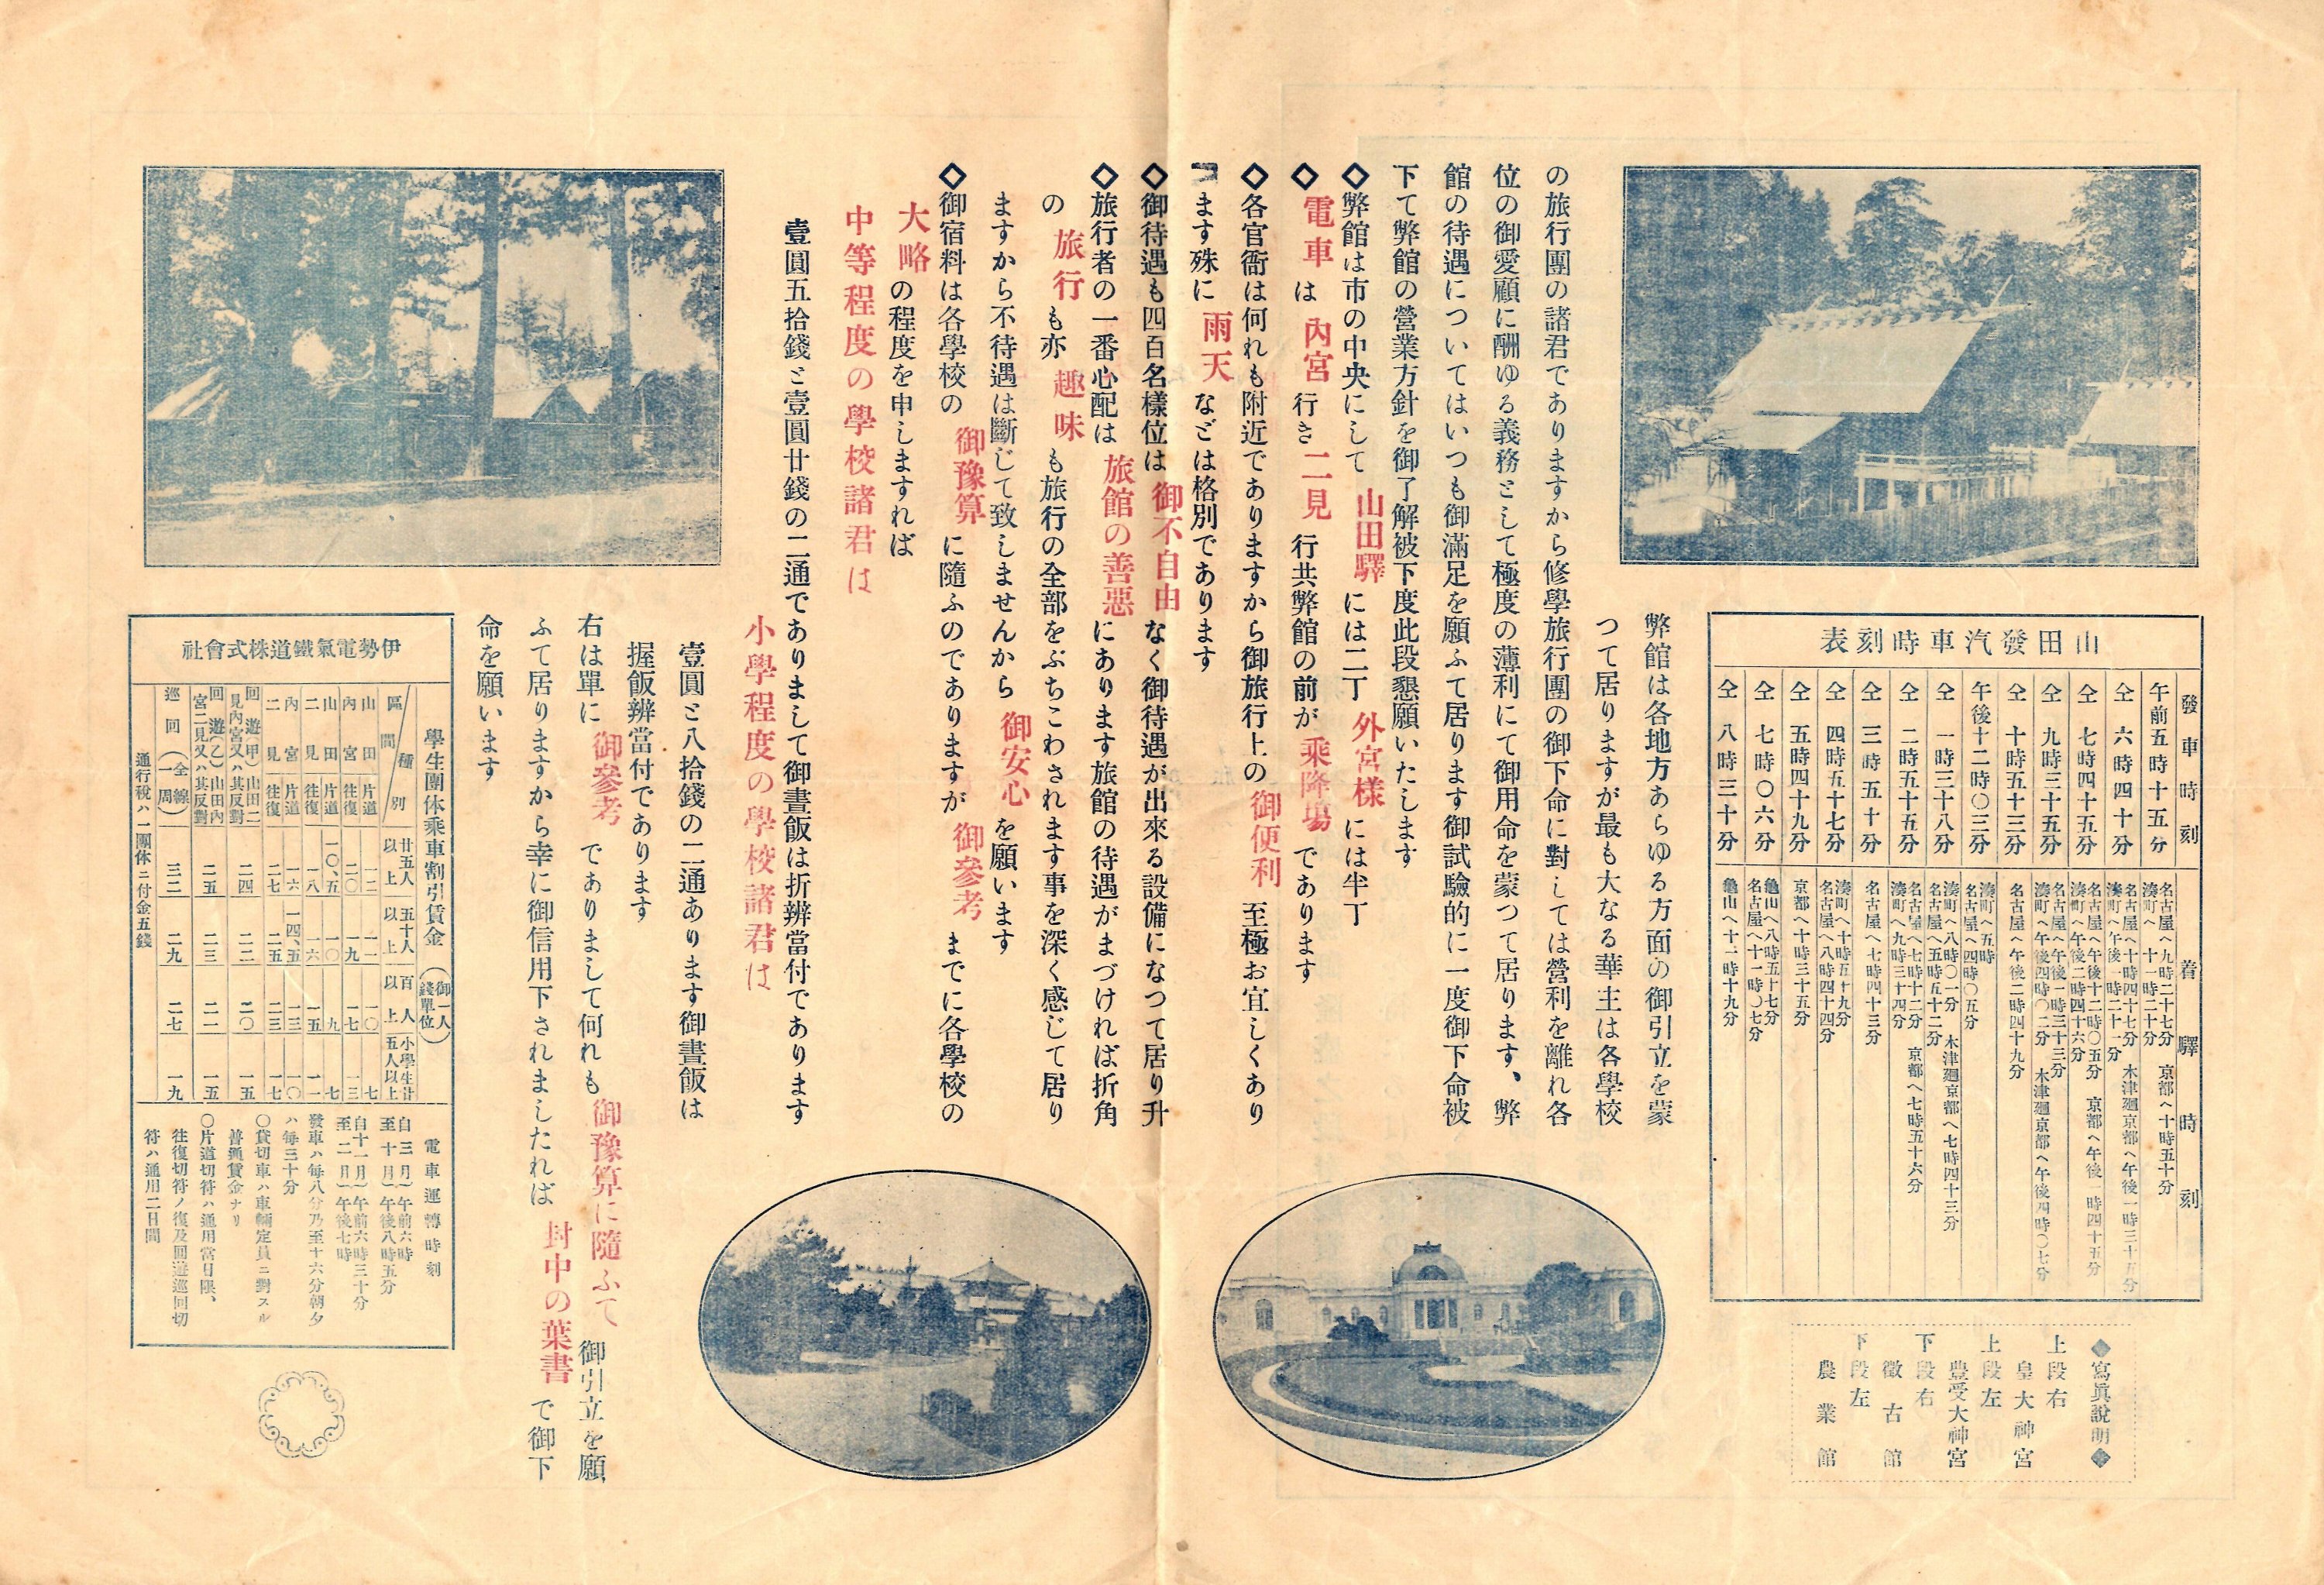 山田發汽車時刻表
發車時刻
着驛時刻
午前五時十五分
名古屋へ九時二十七分 京都へ十時五十分
湊町へ十一時二十分
仝 六時四十分
名古屋へ十時四十七分 木津廻京都へ午後一時三十五分
湊町へ午後一時二十一分
仝 七時四十五分
名古屋へ午後十二時〇五分 京都へ午後一時四十五分
湊町へ午後二時四十六分
仝 九時三十五分
名古屋へ午後一時三十三分
湊町へ午後四時〇二分 木津廻京都へ午後四時〇七分
仝 十時五十三分
名古屋へ午後二時四十九分
午後十二時〇三分
湊町へ五時
名古屋へ四時〇五分
仝 一時三十八分
湊町へ八時〇一分 木津廻京都へ七時四十三分
名古屋へ五時五十二分
仝 二時五十五分
名古屋へ七時十二分 京都へ七時五十六分
湊町へ九時三十四分
仝 三時五十分
名古屋へ七時四十三分
仝 四時五十七分
湊町へ十時五十九分
名古屋へ八時四十四分
仝 五時四十九分
京都へ十時三十五分
仝 七時〇六分
亀山へ八時五十七分
名古屋へ十一時〇七分
仝 八時三十分
亀山へ十一時十九分
◆寫眞說明◆
上段右
皇大神宮
上段左
豊受大神宮
下段右
徵古館
下段左
農業館
弊館は各地方あらゆる方面の御引立を蒙
つて居りますが最も大なる華主は各學校
の旅行團の諸君でありますから修學旅行團の御下命に對しては營利を離れ各
位の御愛顧に酬ゆる義務として極度の薄利にて御用命を蒙つて居ります、弊
館の待遇についてはいつも御滿足を願ふて居ります御試驗的に一度御下命被
下て弊館の營業方針を御了解被下度此段懇願いたします
◇弊館は市の中央にして 山田驛 には二丁 外宮樣 には半丁
◇電車 は 內宮 行き 二見 行共弊館の前が 乘降場 であります
◇各官衙は何れも附近でありますから御旅行上の 御便利 至極お宜しくあり
ます殊に 雨天 などは格別であります
◇御待遇も四百名樣位は 御不自由 なく御待遇が出來る設備になつて居り升
◇旅行者の一番心配は 旅館の善惡 にあります旅館の待遇がまづければ折角
の 旅行 も亦 趣味 も旅行の全部をぶちこわされます事を深く感じて居り
ますから不待遇は斷じて致しませんから 御安心 を願います
◇御宿料は各學校の 御豫算 に隨ふのでありますが 御參考 までに各學校の
大略 の程度を申しますれば
中等程度の學校諸君は
壹圓五拾錢と壹圓廿錢の二通でありまして御晝飯は折辨當付であります
小學程度の學校諸君は
壹圓と八拾錢の二通あります御晝飯は
握飯辨當付であります
右は單に 御參考 でありまして何れも 御豫算に隨ふて 御引立を願
ふて居りますから幸に御信用下されましたれば 封中の葉書 で御下
命を願います
伊勢電氣鐵道株式會社
學生團体乘車割引賃金 (御一人錢單位)
區間 種別 廿五人以上 五十人以上 百人以上 小學生廿五人以上
山田內宮 片道 一二 一一 一〇 七
往復 二〇 一九 一七 一三
山田二見 片道 一〇、五 一〇 九 七
往復 一八 一六 一五 一一
內宮二見 片道 一六 一四、五 一三 一〇
往復 二七 二五 二三 一七
回遊(甲)山田二見內宮又ハ其反對 二四 二二 二〇 一五
回遊(乙)山田內宮二見又ハ其反對 二五 二三 二一 一五
巡回(全線一周) 三二 二九 二七 一九
通行稅ハ一團体ニ付金五錢
電車運轉時刻
自三月至十月 午前六時 午後八時五分
自十一月至二月 午前六時三十分 午後七時
發車ハ每八分乃至十六分朝夕
ハ每三十分
〇貸切車ハ車輛定員ニ對スル
普通賃金ナリ
〇片道切符ハ通用當日限、
往復切符ノ復及回遊巡回切
符ハ通用二日間